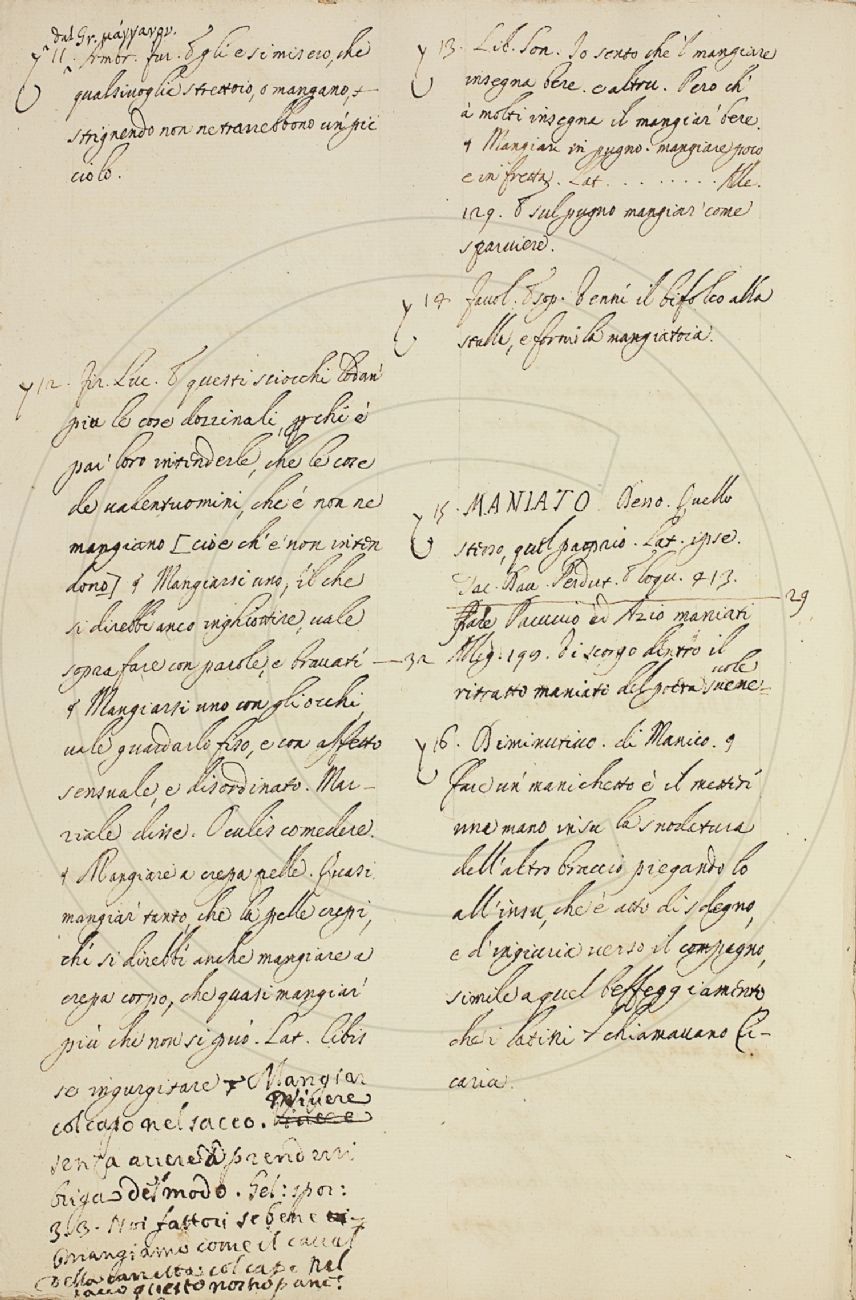 dal Gr. μάγγανον.
11. Ambr. fur. E gli e si misero, che
qualsivoglia strettoio, o mangano,
strignendo non ne trarrebbono un pic
ciolo.
12. Fir. Luc. E questi sciocchi lodan'
più le cose dozzinali, perchè è
par' loro intenderle, che le cose
de valentuomini, che è non ne
mangiano [cioè ch'è non inten
dono] ¶ Mangiarsi uno, il che
si direbbe anco inghiottire, vale
sopra fare con parole, e bravate 32
¶ Mangiarsi uno con gli occhi,
vale guardarlo fiso, e con affetto
sensuale, e disordinato. Mar-
ziale disse. Oculis comedere.
¶ Mangiare a crepa pelle. Quasi
mangiar' tanto, che la pelle crepi,
che si direbbe anche mangiare a
crepa corpo, che quasi mangiar'
più che non si può. Lat. Cibis
se ingurgitare Mangiar
col capo nel sacco. Vivere
senza avere a prendersi
briga del modo. Gel: spor:
3.3. Noi fattori se bene
mangiamo come il caval
della carretta col capo nel
sacco questo non ho pane.
13. Lib. Son. Io sento che 'l mangiare
insegna bere. e altru. Però ch'
a molti insegna il mangiar' bere.
¶ Mangiare in pugno. mangiare poco
e in fretta. Lat. . . . . . . . . Alle.
129. E sul pugno mangiar' come
sparviere.
14 Favol. Esop. Venne il bifolco alla
stalla, e fornì la mangiatoia.
15. MANIATO Desso. Quello
stesso, quel proprio. Lat. ipse.
Tac. Dav. Perdut. Eloqu. 413.
fare Pacuvio ed Azio maniati 29
Alleg. 199. Vi scorgo dentro il
ritratto maniato del poeta vene-
vole
16. Diminutivo. di Manico. ¶
Fare un' manichetto è il mettersi
una mano insu la snodatura
dell'altro braccio piegando lo
all'insu, che è atto di sdegno,
e d'ingiuria verso il compagno,
simile a quel beffeggiamento
che i Latini chiamavano Ci-
caria.